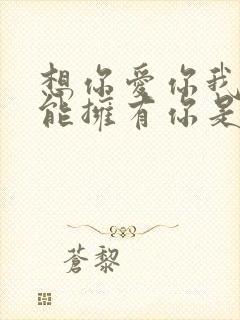 想你愛你我
能擁有你是
蒼黎